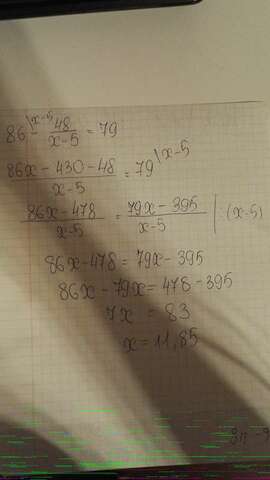 86^{\x-5} - \frac{48}{x-5} = 79
\frac{86x - 430 - 48}{x-5} = 79^{\x-5}
\frac{86x - 478}{x-5} = \frac{79x - 395}{x-5} | ·(x-5)
86x - 478 = 79x - 395
86x - 79x = 478 - 395
7x = 83
x = 11,85